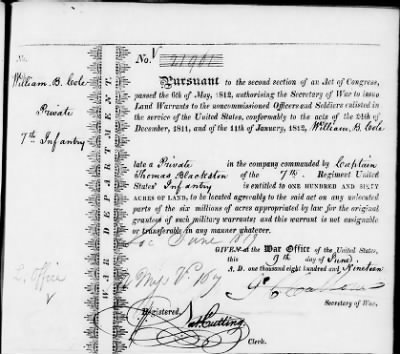 No.
William B. Cole
Private
7th Infantry
WAR DEPARTMENT.
No. 21961
Pursuant to the second section of an Act of Congress,
passed the 6th of May, 1812, authorising the Secretary of War to issue
Land Warrants to the noncommissioned Officers and Soldiers enlisted in
the service of the United States, conformably to the acts of the 24th of
December, 1811, and of the 11th of January, 1812, William B. Cole
late a Private in the company commanded by Captain
Thomas Blackston of the 7th Regiment United
States' Infantry is entitled to ONE HUNDRED AND SIXTY
ACRES OF LAND, to be located agreeably to the said act on any unlocated
parts of the six millions of acres appropriated by law for the original
grantees of such military warrants; and this warrant is not assignable
or transferable in any manner whatever.
June
GIVEN at the War Office of the United States,
this 9th day of June
A. D. one thousand eight hundred and Nineteen
Secretary of War.
L. Office
V
Registered,
Cutting
Clerk.